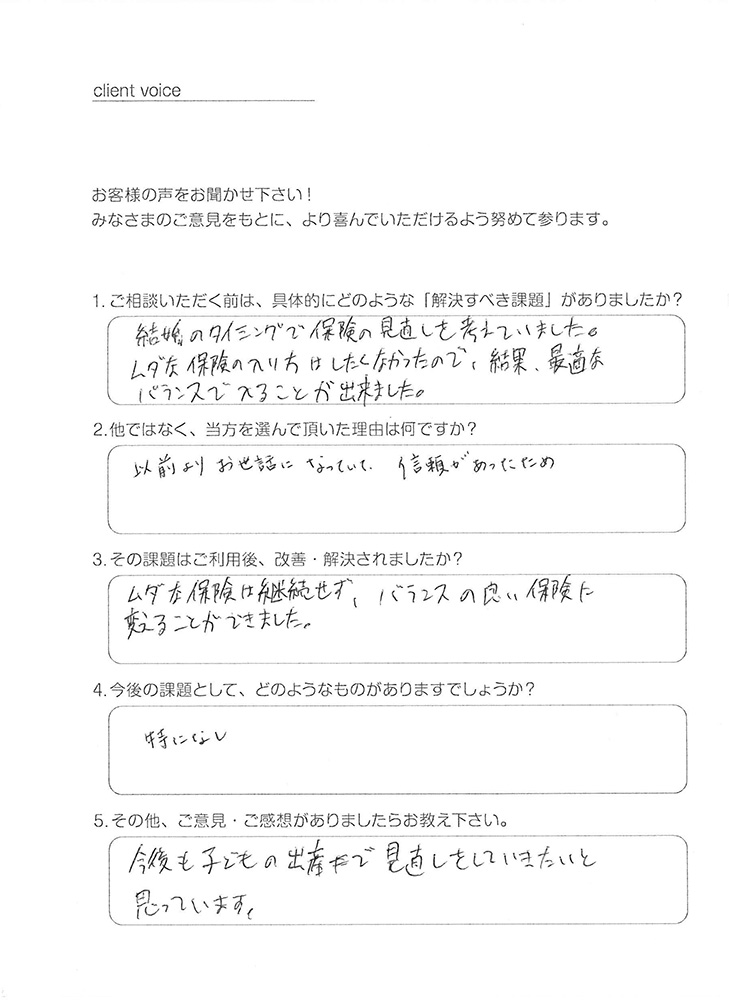 client voice
お客様の声をお聞かせ下さい！
みなさまのご意見をもとに、より喜んでいただけるよう努めて参ります。
1.ご相談いただく前は、具体的にどのような「解決すべき課題」がありましたか？
結婚のタイミングで保険の見直しを考えていました。
ムダな保険の入り方はしたくなかったので、結果、最適な
バランスで入ることが出来ました。
2.他ではなく、当方を選んで頂いた理由は何ですか？
以前よりお世話になっていて、信頼があったため
3.その課題はご利用後、改善・解決されましたか？
ムダな保険は継続せず、バランスの良い保険に
変えることができました。
4.今後の課題として、どのようなものがありますでしょうか？
特になし
5.その他、ご意見・ご感想がありましたらお教え下さい。
今後も子どもの出産で見直しをしていきたいと
思っています。